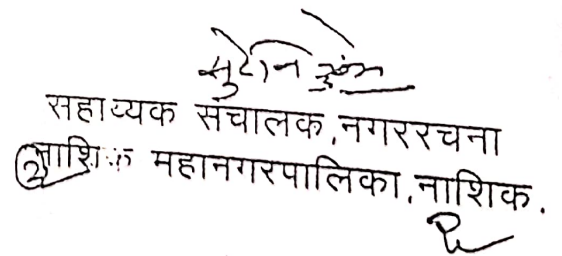 सहाय्यक संचालक, नगररचना
नाशिक महानगरपालिका, नाशिक.